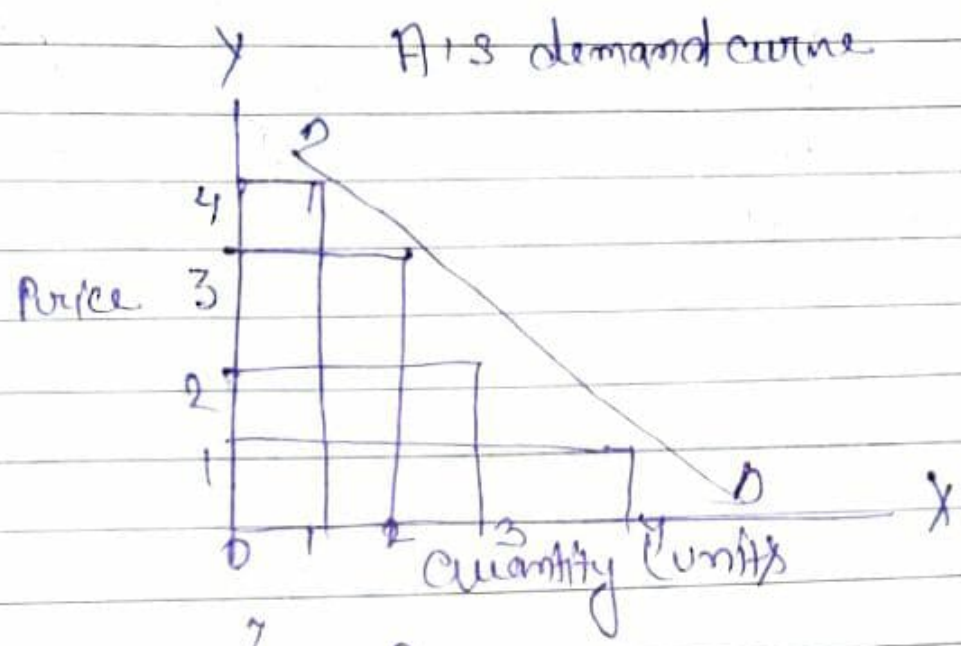 Y A's demand curve
D
4
Price 3
2
1
D
X
0 1 2 3 4
Quantity (units